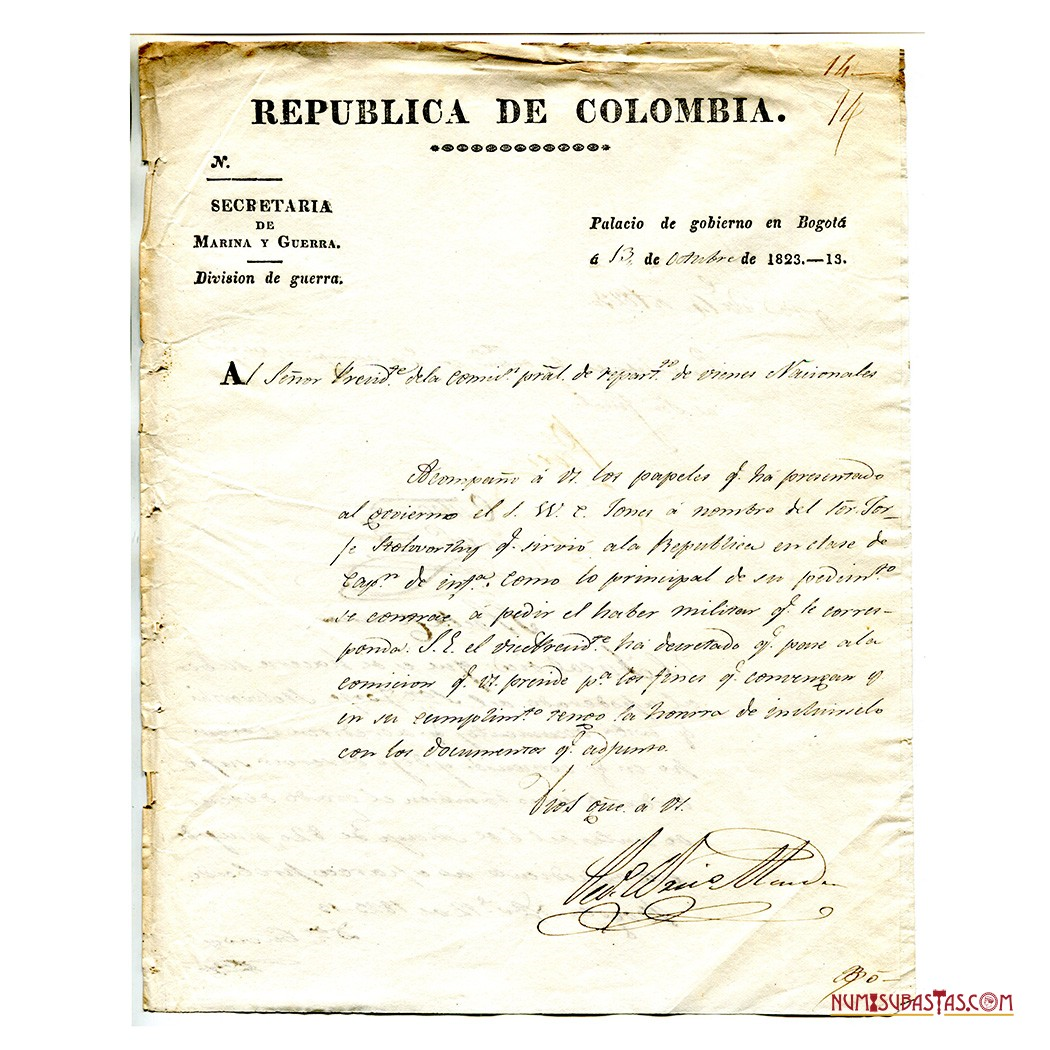 14.
14
REPUBLICA DE COLOMBIA.
N.
SECRETARIA
DE
MARINA Y GUERRA.
Division de guerra.
Palacio de gobierno en Bogotá
á 13 de Octubre de 1823.—13.
Al Señor Presid.te de la Comis.n pral. de repart.to de vienes Nacionales
Acompaño á vs. los papeles q.e há presentado
al govierno el S. W. C. Jones á nombre del Sor. Jor-
je q.e sirvió ala Republica en clase de
Cap.n de inf.a. Como lo principal de su pedim.to
se contrae á pedir el haber militar q.e le corres-
ponda. S. E. el vicePresid.te há decretado q.e pase ala
comicion q.e vs. preside p.a los fines q.e convengan y
en su cumplim.to tengo la honrra de incluirselo
con los documentos q.e adjunto.
Dios gue. á vs.
NUMISUBASTAS.COM